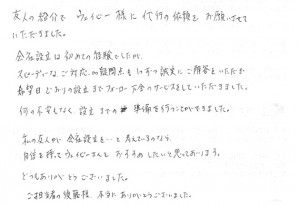 友人の紹介で ウェイビー様に 代行の依頼を お願いさせて
いただきました。
会社設立は 初めての経験でしたが、
スピーディーな ご対応、疑問点も 1つずつ 誠実に ご解答を いただき
希望日 どおりの設立まで フォロー 万全の サービスをして いただきました。
何の不安もなく 設立までの 準備を行うことができました。
私の友人が 会社設立を…と 考えているのなら、
自信を持って ウェイビーさんを おすすめ したいと思っております。
どうも ありがとう ございました。
ご担当者の後藤様、本当に ありがとうございました。